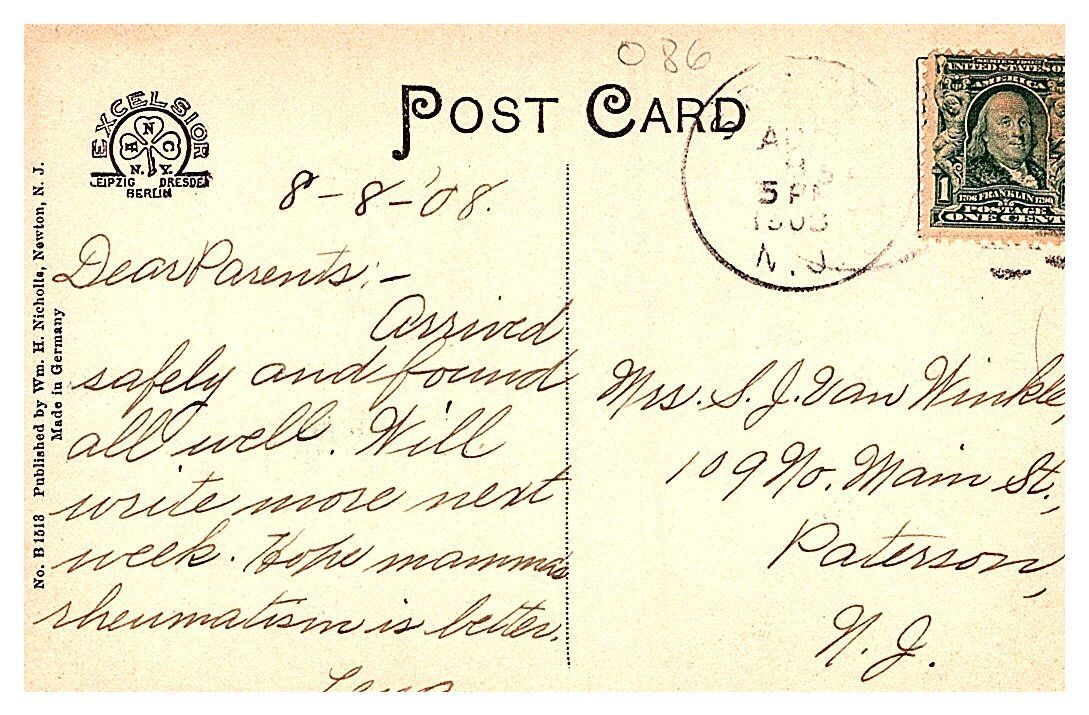 086
POST CARD
EXCELSIOR
N
H C
N. Y.
LEIPZIG DRESDEN
BERLIN
No. B 1513 Published by Wm. H. Nicholls, Newton, N. J.
Made in Germany
8-8-'08.
Dear Parents:-
Arrived
safely and found
all well. Will
write more next
week. Hope mamma's
rheumatism is better.
AU
8
5 PM
1908
N. J.
SERIES 1902
UNITED STATES OF
AMERICA
1
1706 FRANKLIN 1790
POSTAGE
ONE CENT
Mrs. S. J. Van Winkle,
109 No. Main St.,
Paterson,
N. J.